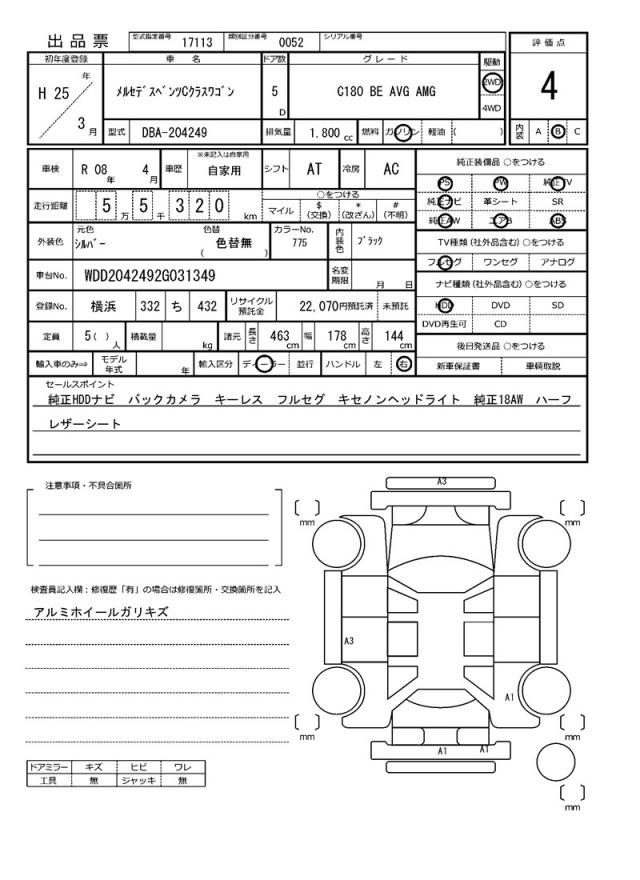 出品票 型式指定番号 17113 類別区分番号 0052 シリアル番号
評価点
4
初年度登録 車名 ドア数 グレード 駆動
H 25 年 3 月 メルセデスベンツCクラスワゴン 5 D C180 BE AVG AMG 2WD 4WD
型式 DBA-204249 排気量 1.800 cc 燃料 ガソリン 軽油 ( ) 内装 A B C
車検 R 08 年 4 月 車歴 ※未記入は自家用 自家用 シフト AT 冷房 AC
走行距離 5 万 5 千 3 2 0 km ○をつける
マイル $(交換) *(改ざん) #(不明)
外装色 元色 シルバー 色替 色替無 ( ) カラーNo. 775 内装色 ブラック
車台No. WDD2042492G031349 名変期限 月 日
登録No. 横浜 332 ち 432 リサイクル預託金 22,070円預託済 未預託
定員 5 ( ) 人 積載量 kg 諸元 長さ 463 cm 幅 178 cm 高さ 144 cm
輸入車のみ⇒ モデル年式 年 輸入区分 ディーラー 並行 ハンドル 左 右
純正装備品 ○をつける
PS PW 純正TV
純正ナビ 革シート SR
純正AW エアB ABS
TV種類 (社外品含む) ○をつける
フルセグ ワンセグ アナログ
ナビ種類 (社外品含む) ○をつける
HDD DVD SD
DVD再生可 CD
後日発送品 ○をつける
新車保証書 車輌取説
セールスポイント
純正HDDナビ バックカメラ キーレス フルセグ キセノンヘッドライト 純正18AW ハーフ
レザーシート
注意事項・不具合箇所
検査員記入欄：修復歴「有」の場合は修復箇所・交換箇所を記入
アルミホイールガリキズ
ドアミラー キズ ヒビ ワレ
工具 無 ジャッキ 無
A3
mm mm
A3
A1
mm mm
A1 A1
mm